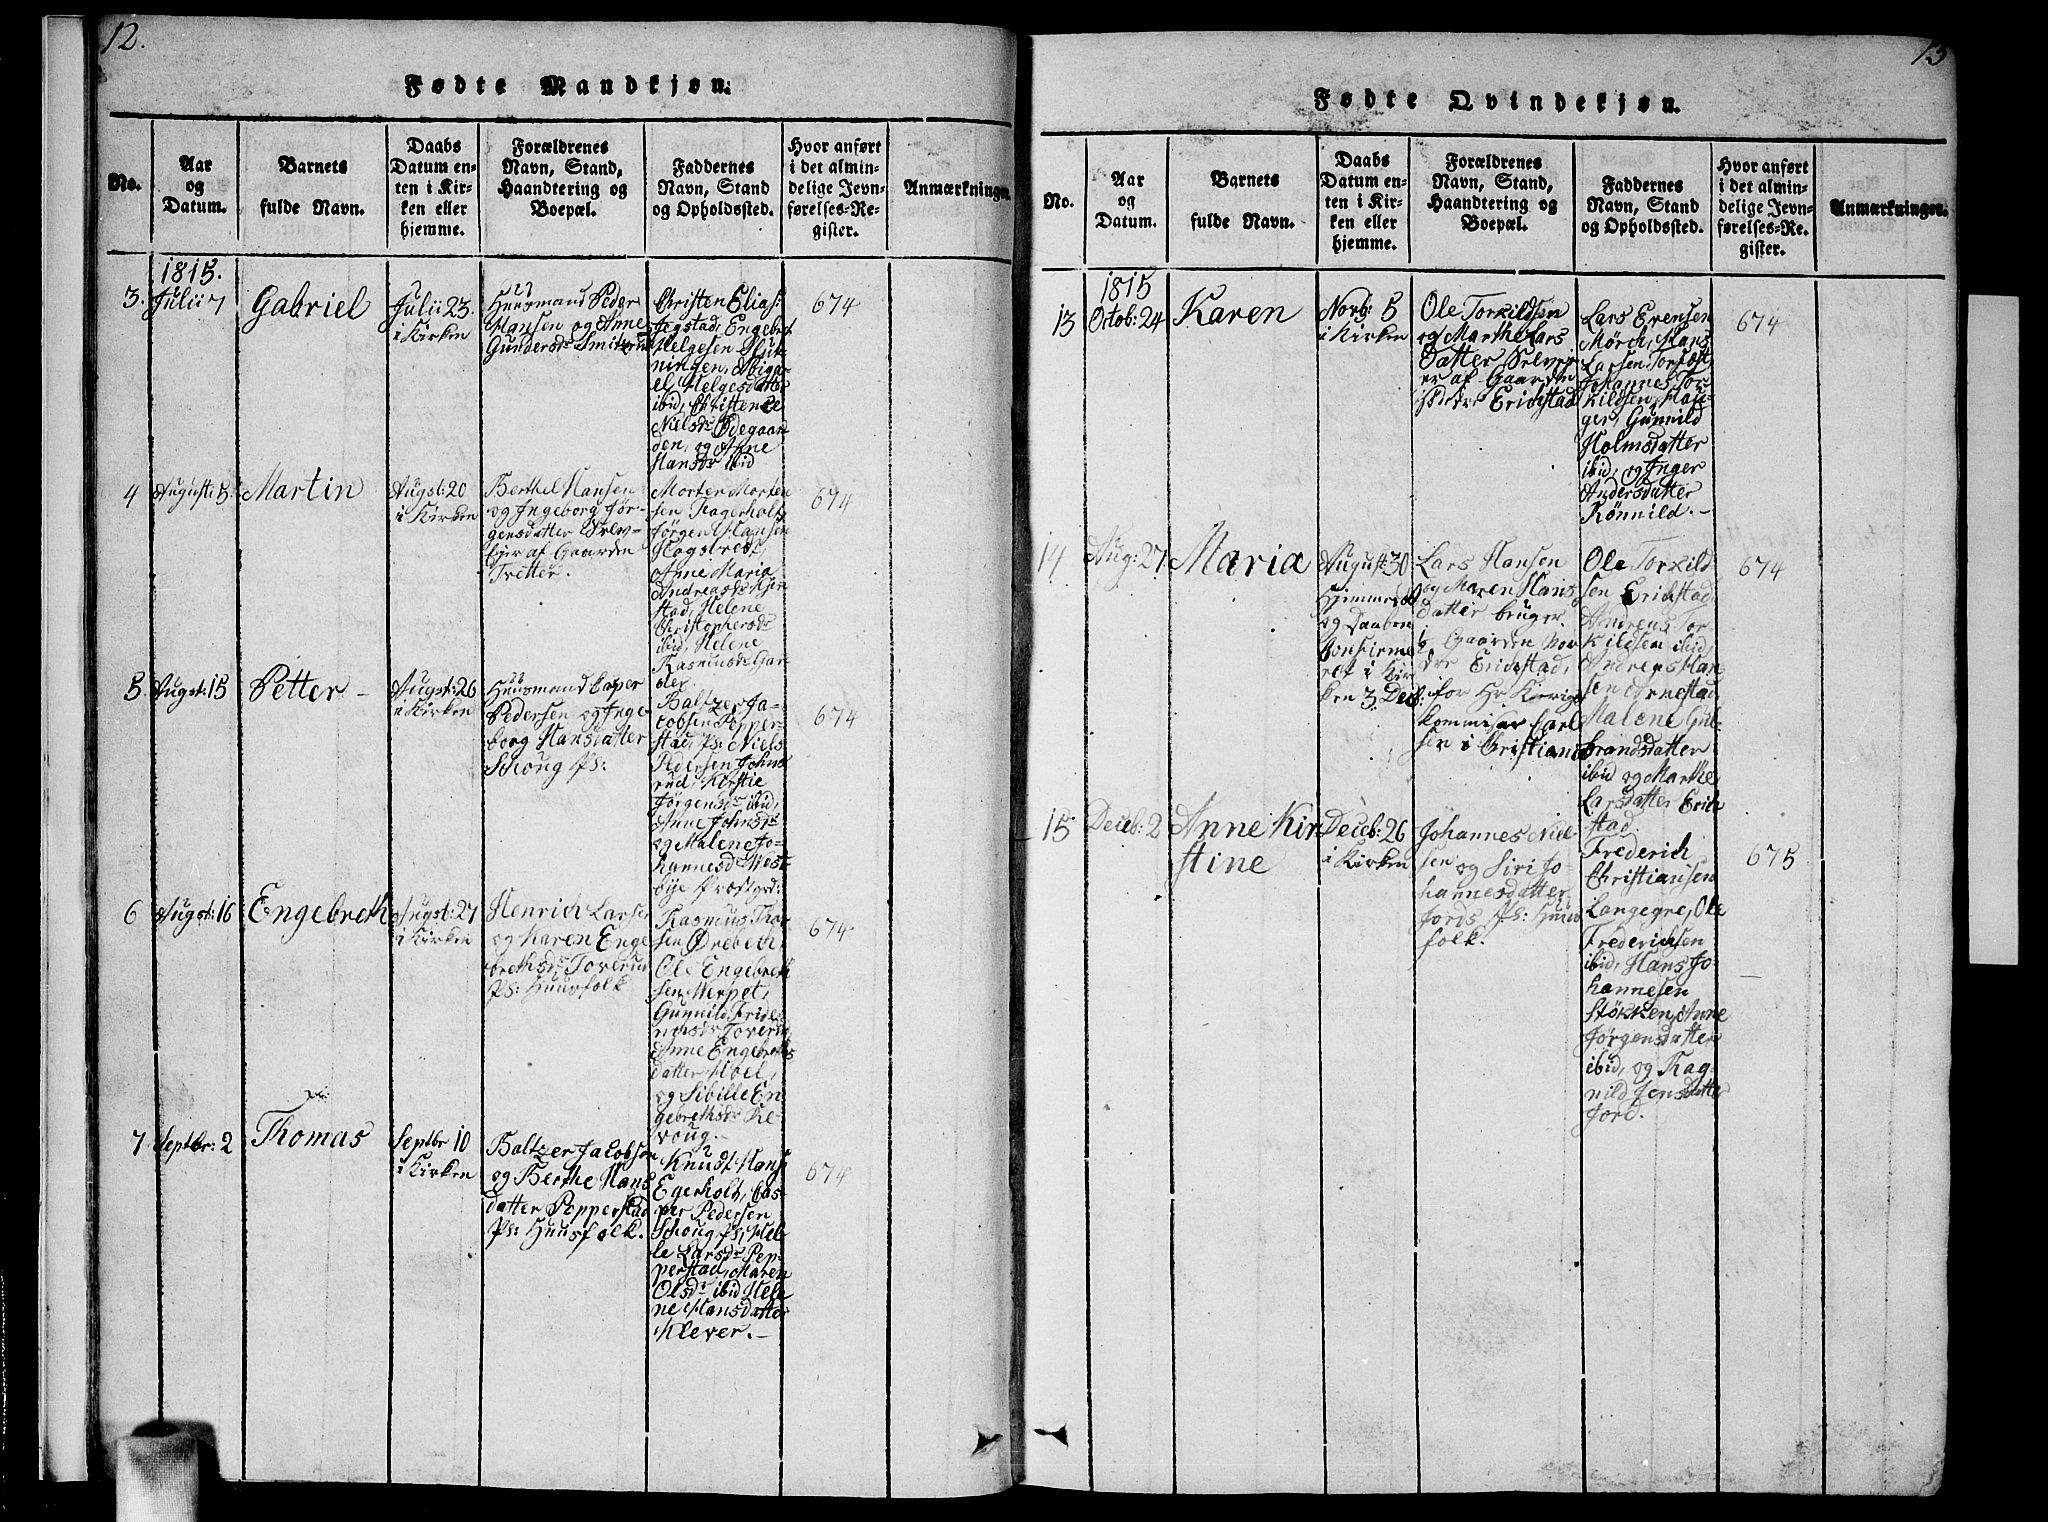 12.
Fødte Mandkjøn.
No.
Aar
og
Datum.
Barnets
fulde Navn.
Daabs
Datum en-
ten i Kir-
ken eller
hjemme.
Forældrenes
Navn, Stand,
Haandtering og
Boepæl.
Faddernes
Navn, Stand
og Opholdssted.
Hvor anført
i det almin-
delige Jevn-
førelses-Re-
gister.
Anmærkninger.
1815.
3.
Julii 7
Gabriel
Julii 23.
i Kirken
Huusmand Peder
Hansen og Anne
Gundersdr Smiterud
Christen Elias:
Jegstad, Engebret
Helgesen Slut-
ningen, Abiga-
el Helgesdatter
ibid, Christence
Nielsdr Ødegaar-
den, og Anne
Hansdr ibid
674
4
August: 5.
Martin
Augst: 20
i Kirken
Berthel Hansen
og Ingeborg Jør-
gensdatter Selv-
Ejer af Gaarden
Tretter.
Morten Morten
sen Fagerholt
Jørgen Hansen
Hagstred,
Anne Maria
Andreasdr Kjer-
stad, Helene
Christophersdr
ibid, Helene
Rasmusdr Gar-
der.
674
5.
Augst: 15
Petter -
Augst: 26
i Kirken
Huusmand Casper
Pedersen og Inge-
borg Hansdatter
Schoug Ps:
Baltzer Ja-
cobsen Pepper-
stad, Ps: Niels
Pedersen Johns
rud, Kirstie
Jørgensdr ibid,
Anne Johnsdr
og Malene Jo-
hannesd West-
bye Præstgrd:
674
6
Augst: 16
Engebreth
Augst: 27
i Kirken
Henrich Larsen
og Karen Enge
brethsdr Toverud
Ps: Huusfolk
Rasmus Thor-
sen Ørebech
Ole Engebreth
sen Werpet,
Gunnild Fride-
richsdr Toverud
Anne Engebreths
datter Hoel,
og Sibille En-
gebrethsdr Re-
voug.
674
7
Septbr: 2
Thomas
Septbr 10
i Kirken
Baltzer Jacobsen
og Berthe Hans
datter Pepperstad
Ps: Huusfolk.
Knud Hans:
Egerholt, Cas-
per Pedersen
Schoug Ps, Hel-
le Larsdr Pep-
perstad, Maren
Olsdr ibid Hele
ne Hansdatter
Klever. -
674
13
Fødte Qvindekjøn.
No.
Aar
og
Datum.
Barnets
fulde Navn.
Daabs
Datum en-
ten i Kir-
ken eller
hjemme.
Forældrenes
Navn, Stand,
Haandtering og
Boepæl.
Faddernes
Navn, Stand
og Opholdssted.
Hvor anført
i det almin-
delige Jevn-
førelses-Re-
gister.
Anmærkninger.
1815
13
Octob: 24
Karen
Novb: 5
i Kirken
Ole Torkildsen
og Marthe Lars
datter Selvej-
er af Gaarden
Nedre Erichstad
Lars Evensen
Mörch, Hans
Larsen Torfæst
Johannes Tor
kildsen, Hau-
ger, Gunnild
Holmsdatter
ibid, og Inger
Andersdatter
Rönnild. -
674
14
Aug: 27
Maria
August: 30
Hjemmedöbt
og Daaben
Confirme
ret i Kir
ken 3 Decb:
Lars Hansen
og Maren Hans
datter bruger
½ Gaarden Nor
dre Erichstad,
for Hr Kierigs
kommisær Carl
sen i Christiania
Ole Torkild
sen Erichstad
Andreas Tor
kildsen ibid,
Andreas Han
sen Ørnestad
Malene Gul-
brandsdatter
ibid og Marthe
Larsdatter Erich
stad.
674
15
Deceb: 2
Anne Kir-
stine
Deceb: 26
i Kirken
Johannes Niel-
sen og Siri Jo-
hannesdatter
Jords Ps: Huus
folk.
Frederich
Christiansen
Langegre, Ole
Frederichsen
ibid, Hans Jo-
hannesen
Støkken, Anne
Jørgensdatter
ibid, og Rag-
nild Jensdatter
Jord.
675